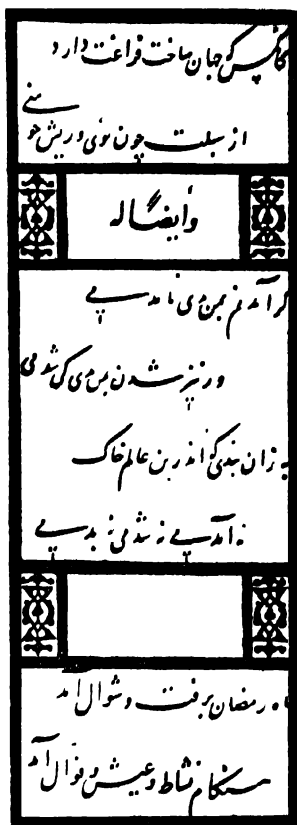 کانکس که جهان ساخت فراغت دارد
از سبلت چون توئی و ریش چو منی
وأیضاً له
گر آمدنم بمن بدی نامدمی
ور نیز شدن بمن بدی کی شدمی
به زان بدی که اندرین عالم خاک
نه آمدمی نه شدمی نه بدمی
ماه رمضان برفت و شوال آمد
هنگام نشاط و عیش و قوال آمد